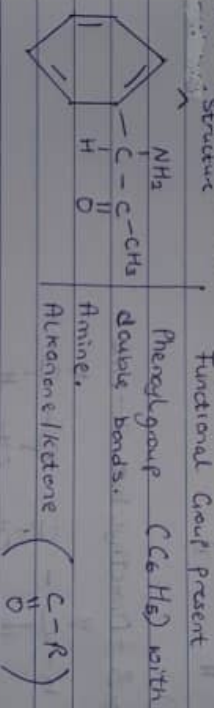 Structure
Functional Group present
NH2
- C - C - CH3
H O
Phenyl group (C6H5) with
double bonds.
Amine.
Alkanone/ketone ( C - R )
O